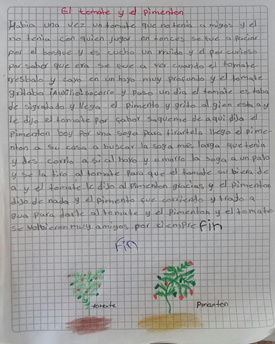 El tomate y el pimenton
Habia una vez un tomate que no tenia a migos y el
no tenia con quien jugar entonces se fue a caminar
por el bosque y es cucho un ruido y el por curioso
por saber que era se fue a ver cuando el tomate
resbalo y cayo en un hoyo muy profundo y el tomate
gritaba ¡Auxilio! socorro y paso un dia el tomate estaba
de sigratado y llego el pimento y grito al gien esta a y
le dijo el tomate por fabor saqueme de aqui dijo el
Pimenton boy por una soga para tirartela llego el pimen
ton a su casa a buscar la soga mas larga que tenia
y des corrio a si al hoyo y amarro la soga a un palo
y se la tiro al tomate para que el tomate su biera de
a y el tomate le dijo al Pimenton gracias y el Pimenton
dijo de nada y el Pimento fue corriendo y trajo a
gua para darle al tomate y el Pimenton y el tomate
se volbieron muy amigos por siempre Fin
Fin
tomate
Pimenton